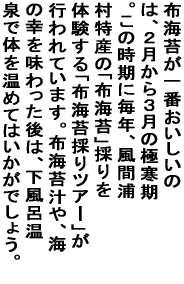 布海苔が一番おいしいの
は、２月から３月の極寒期
。この時期に毎年、風間浦
村特産の「布海苔」採りを
体験する「布海苔採りツアー」が
行われています。布海苔汁や、海
の幸を味わった後は、下風呂温
泉で体を温めてはいかがでしょう。